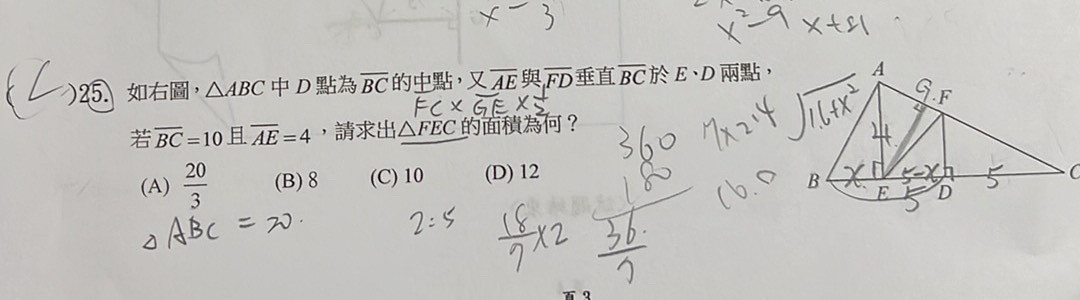 x - 3
x² - 9 x + 81
(C)25. 如右圖，△ABC 中 D 點為 BC 的中點，又 AE 與 FD 垂直 BC 於 E、D 兩點，
FC × GE × ½
若 BC = 10 且 AE = 4，請求出△FEC 的面積為何？
(A) 20/3 (B) 8 (C) 10 (D) 12
△ABC = 20.
2:5
18/7 × 2
360
180
36/7
7×2.4
√16+x²
16.0
A
9.
F
4
B
x
E
5-x
D
5
C
5
頁 3